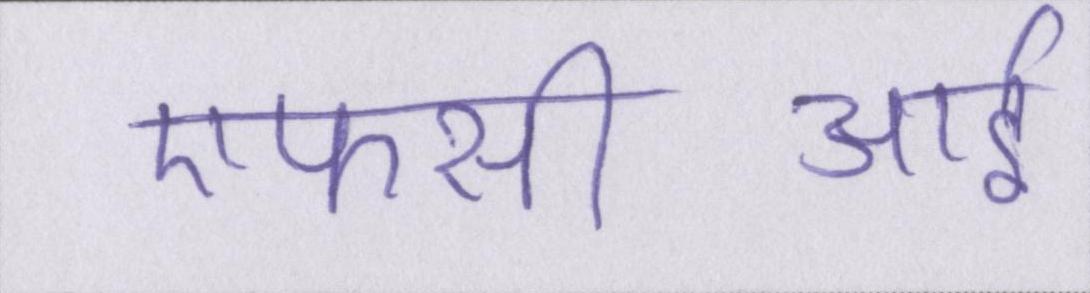 एफसी आई